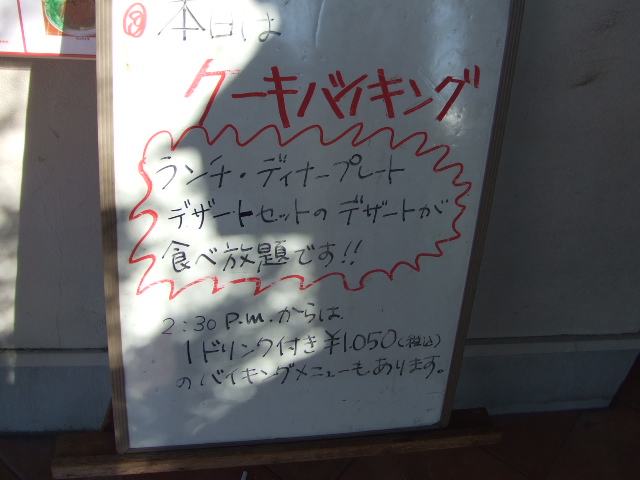 本日は
ケーキバイキング
ランチ・ディナープレート
デザートセットのデザートが
食べ放題です!!
2:30 P.m.からは
1ドリンク付き¥1.050(税込)
のバイキングメニューもあります。